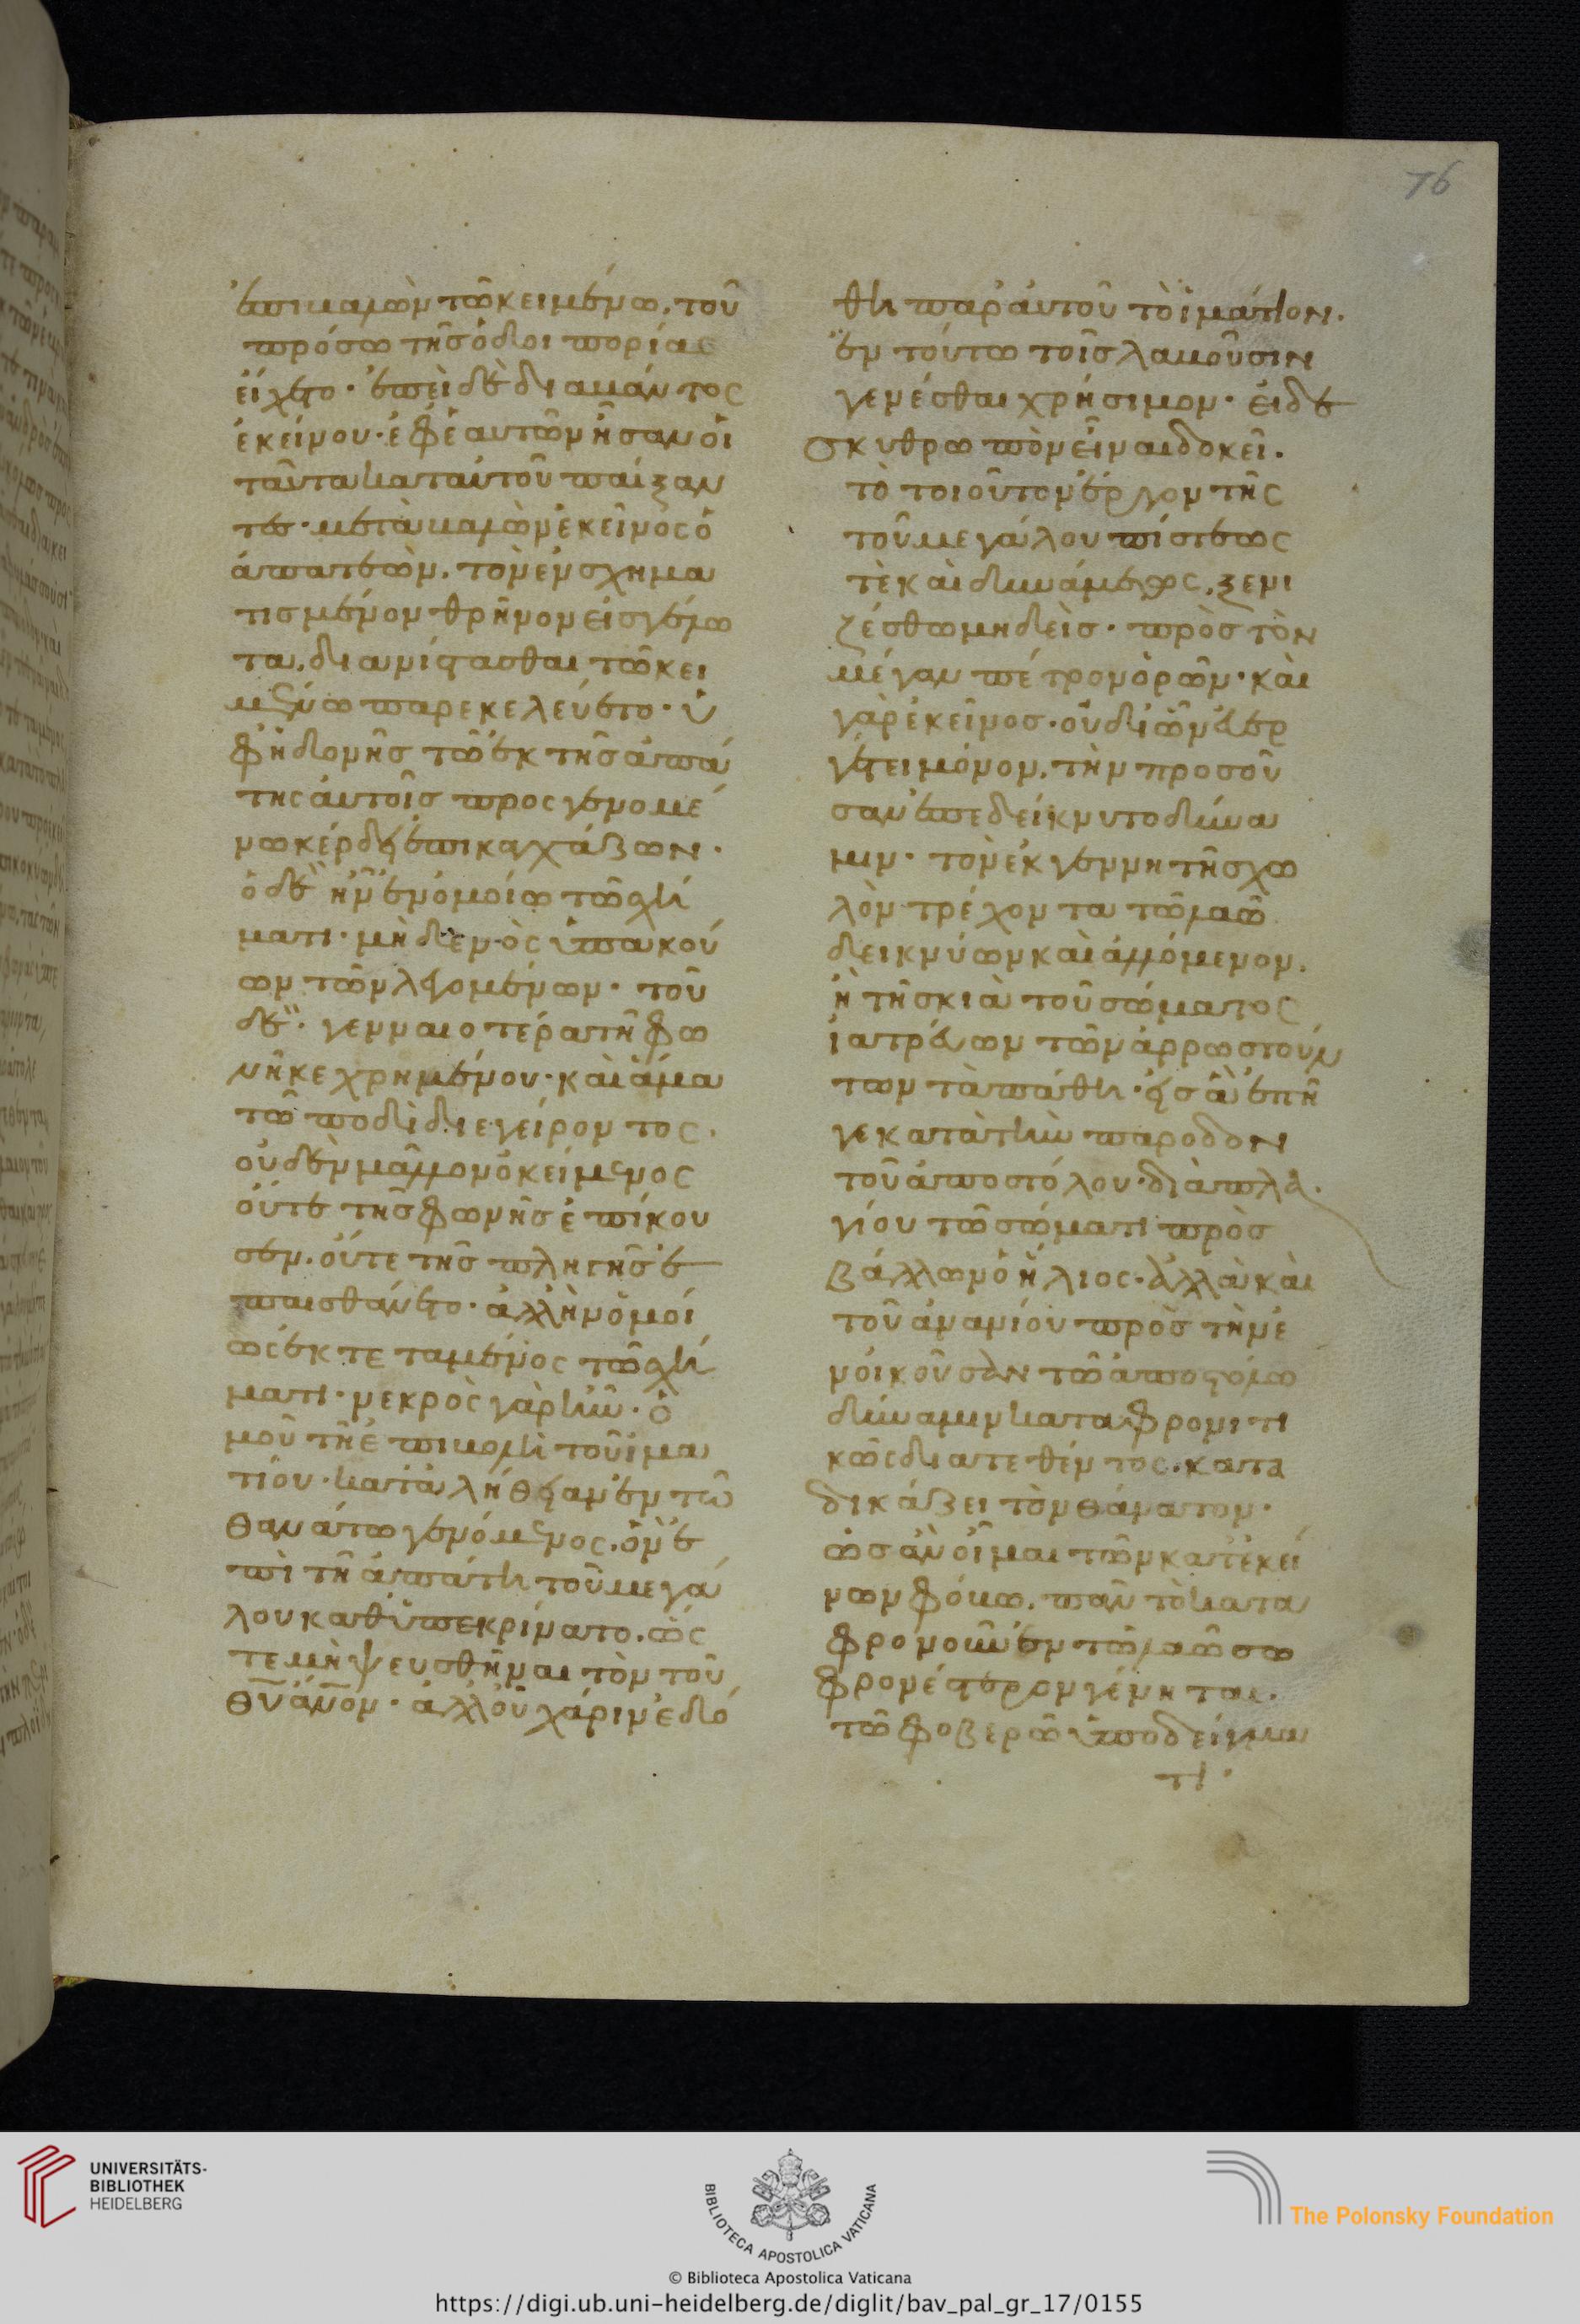 76
ἐπιβαλὼν τῶ κειμένω, τοῦ
πρόσω τῆς ὁδοιπορίας
εἴχετο· ἐπεὶ δὲ διαβάντος
ἐκείνου· ἐφ' ἑαυτῶν ἦσαν οἱ
ταῦτα κατ' αὐτοῦ παίξαν
τες· μεταβαλὼν ἐκεῖνος ὁ
ἀπατεὼν, τὸν ἐνσχημα
τισμένον θρῆνον εἰς γέλω
τα, διανίστασθαι τῶ κει
μένω παρεκελεύετο· ὑ
φ' ἡδονῆς τῶ ἐκ τῆς ἀπά
της αὐτοῖς προσγενομέ
νω κέρδει ἐπικαχάζων·
ὁ δὲ ἦν ἐν ὁμοίω τῶ σχή
ματι· μηδενὸς ὑπακού
ων τῶν λεγομένων· τοῦ
δὲ· γενναιοτέρα τῆ φω
νῆ κεχρημένου· καὶ ἅμα
τῶ ποδὶ διεγείροντος·
οὐδὲν μᾶλλον ὁ κείμενος
οὔτε τῆς φωνῆς ἐπήκου
σεν· οὔτε τῆς πληγῆς ἐ
παισθάνετο· ἀλλ' ἦν ὁμοί
ως ἐκτεταμένος τῶ σχή
ματι· νεκρὸς γὰρ ἦν· ὁ
μοῦ τῆ ἐπιβολῆ τοῦ ἱμα
τίου· κατὰ ἀλήθειαν ἐν τῶ
θανάτω γενόμενος, ὃν ἐ
πὶ τῆ ἀπάτη τοῦ μεγά
λου καθυπεκρίνατο, ὥς
τε μὴ ψευσθῆναι τὸν τοῦ
θυ ανον· ἀλλ' οὗ χάριν ἐδό
θη παρ' αὐτοῦ τὸ ἱμάτιον·
ἐν τούτω τοῖς λαβοῦσιν
γενέσθαι χρήσιμον· εἰ δὲ
σκυθρωπὸν εἶναι δοκεῖ·
τὸ τοιοῦτον ἔργον τῆς
τοῦ μεγάλου πίστεώς
τε καὶ δυνάμεως, ξενι
ζέσθω μηδεὶς· πρὸς τὸν
μέγαν πέτρον ὁρῶν· καὶ
γὰρ ἐκεῖνος· οὐ δι' ὧν εὐερ
γέτει μόνον, τὴν προσοῦ
σαν ἐπεδείκνυτο δύνα
μιν· τὸν ἐκ γεννητῆς χω
λὸν τρέχοντα τῶ λαῶ
δεικνύων καὶ ἁλλόμενον,
ἢ τῆ σκιᾶ τοῦ σώματος
ἰατρεύων τῶν ἀρρωστούν
των τὰ πάθη· εἰς ἃ ἐπῆ
γε κατὰ τὴν παροδον
τοῦ ἀποστόλου· διὰ πλα
γίου τῶ σώματι πρὸς
βάλλων ὁ ἥλιος· ἀλλὰ καὶ
τοῦ ἀνανίου πρὸς τὴν ἐ
νοικοῦσαν τῶ ἀποστόλω
δύναμιν καταφρονητι
κῶς διατεθέντος· κατα
δικάζει τὸν θάνατον·
ὡς ἂν οἶμαι τῶν κατ' ἐκεί
νων φόβω, πᾶν τὸ κατα
φρονοῦν ἐν τῶ λαῶ σω
φρονέστερον γένηται·
τῶ φοβερῶ ὑποδείγμα
τι·
UNIVERSITÄTS-
BIBLIOTHEK
HEIDELBERG
BIBLIOTECA APOSTOLICA VATICANA
The Polonsky Foundation
© Biblioteca Apostolica Vaticana
https://digi.ub.uni-heidelberg.de/diglit/bav_pal_gr_17/0155